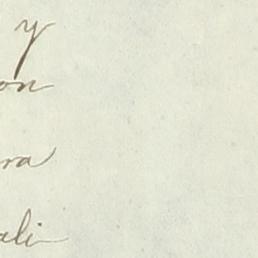 y
on
ra
ali